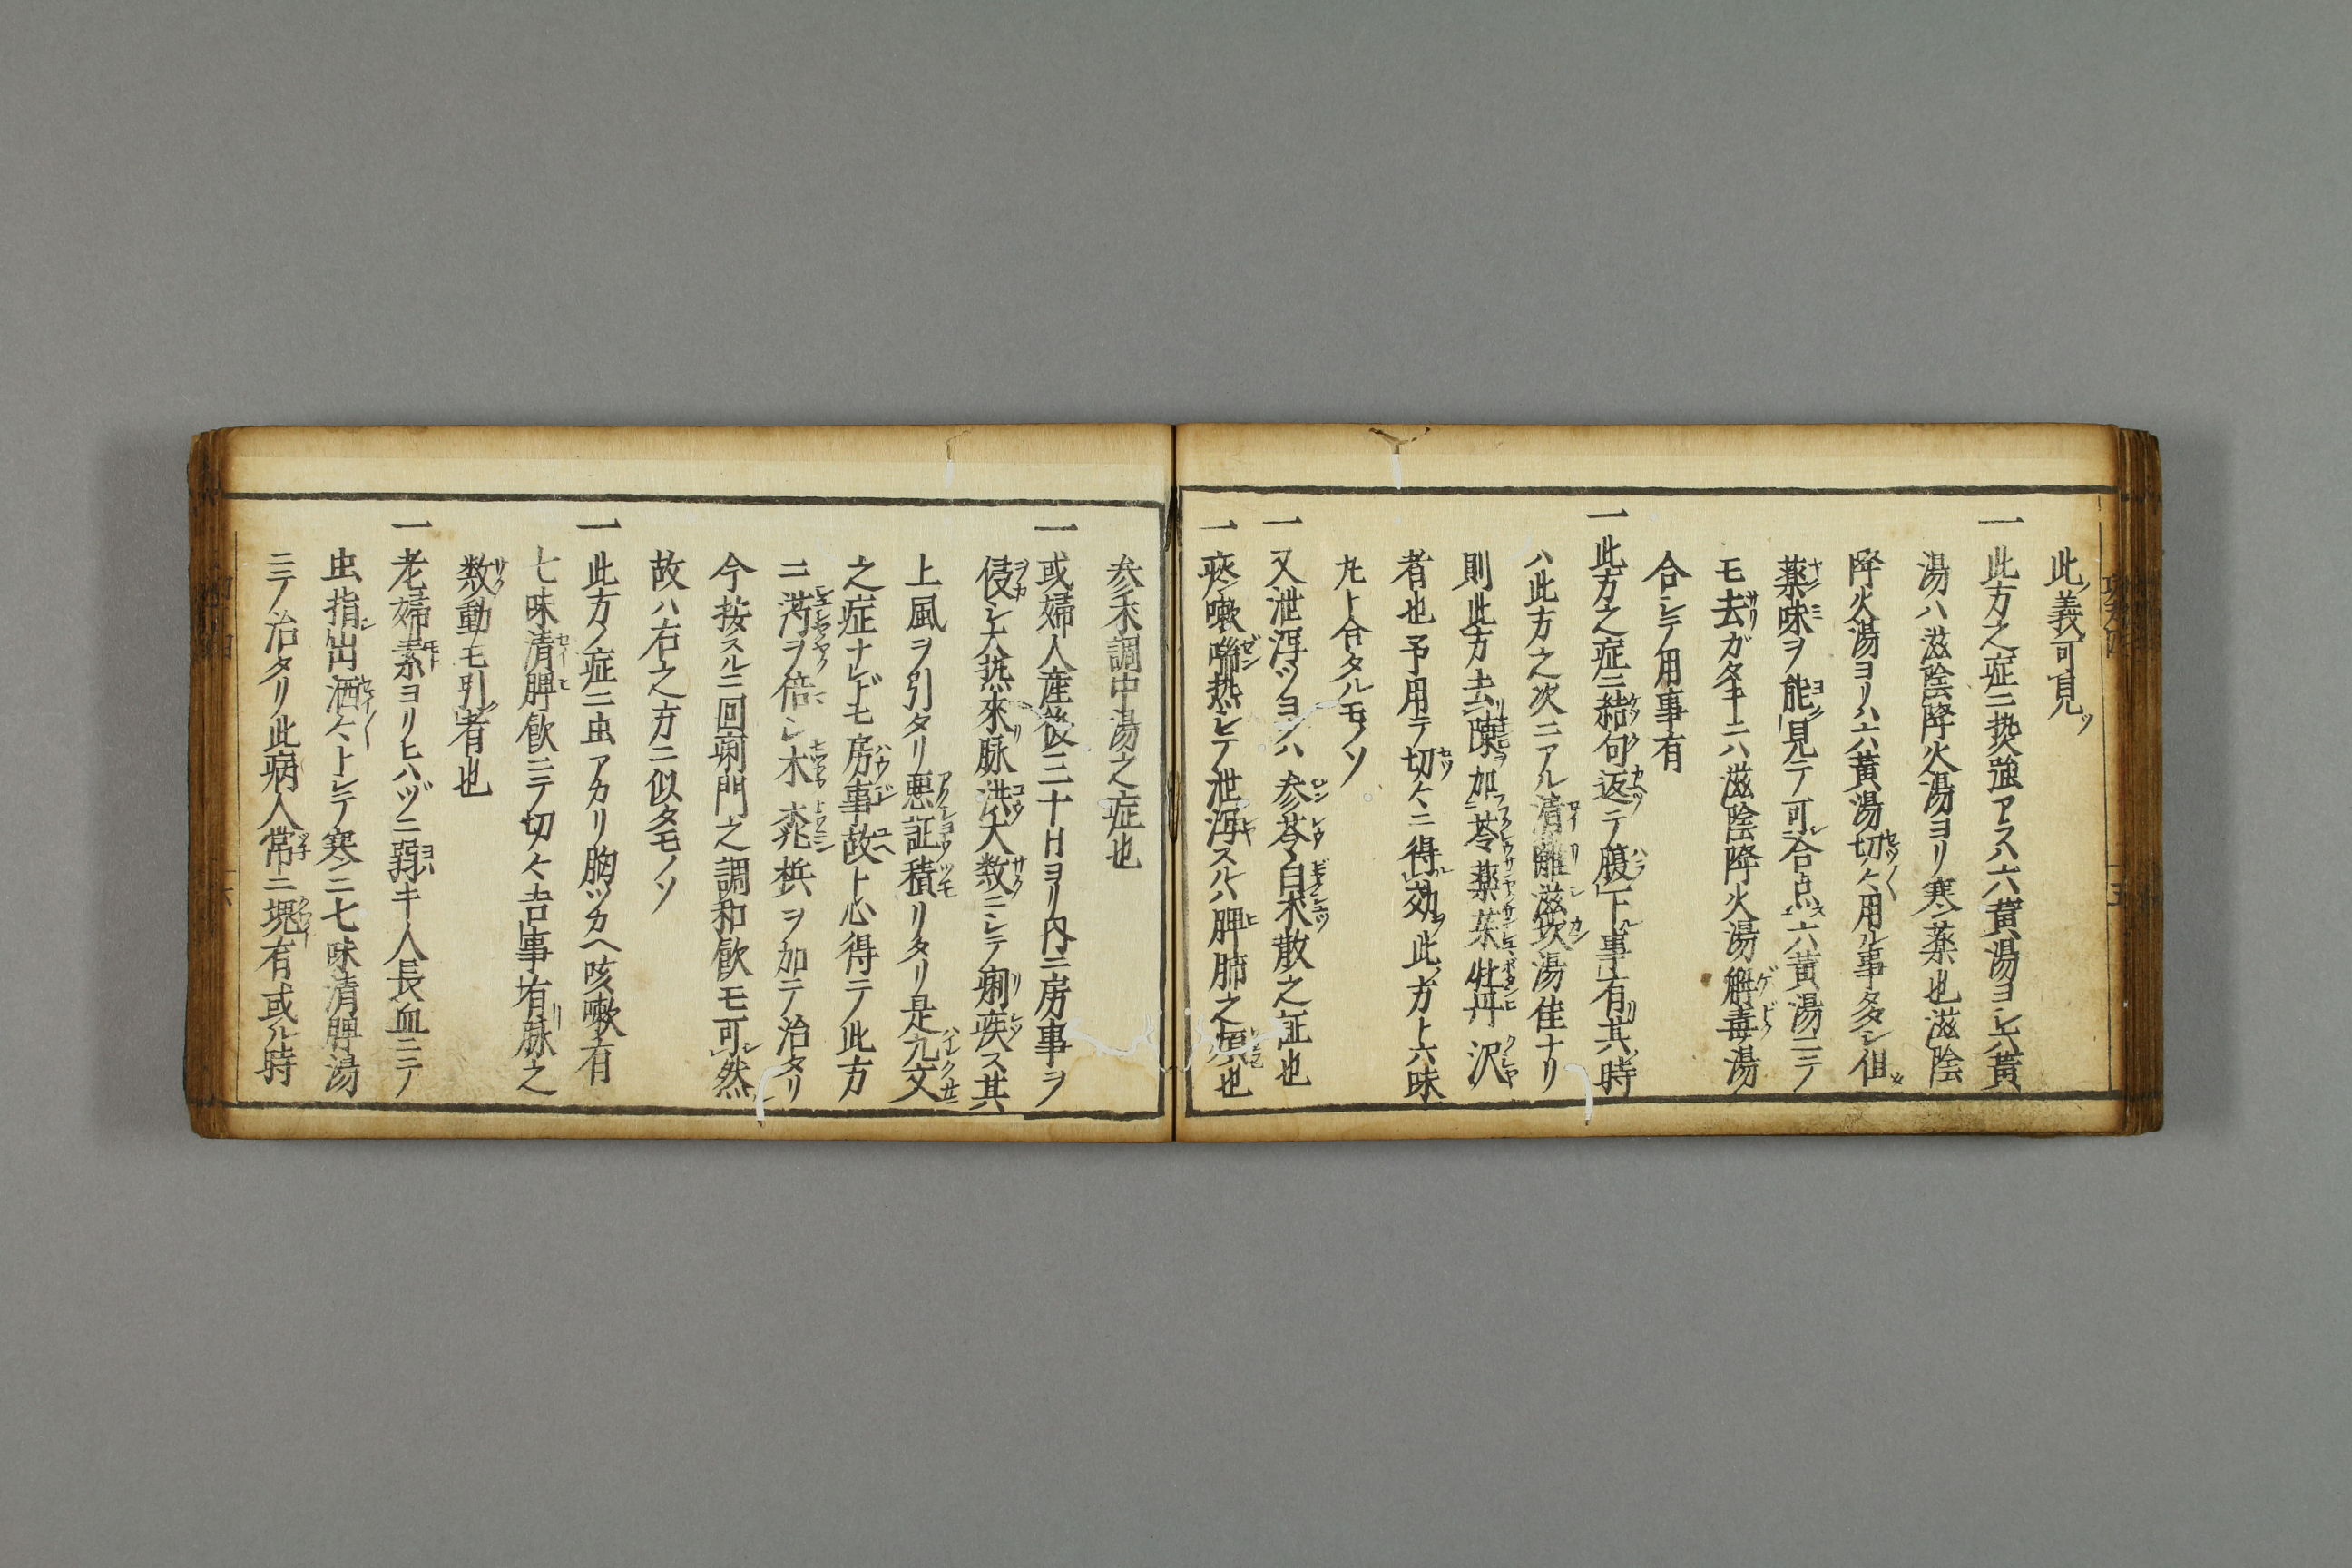 此ノ義可見ツ
一此方之症ニ熱強アスハ六黄湯ヨシ六黄
湯ハ滋陰降火湯ヨリ寒薬也滋陰
降火湯ヨリハ六黄湯切々用ル事多シ但
薬味ヲ能見テ可合点六黄湯ニテ
モ去ガタキニハ滋陰降火湯解毒湯
合シテ用事有
一此方之症ニ結句返テ腹下事有其時
ハ此方之次ニアル清離滋坎湯佳ナリ
則此方去陳加苓薬茱牡丹沢
者也予用テ切々ニ得効此方ト六味
丸ト合タルモノソ
一又泄瀉ツヨシハ参苓白朮散之証也
一痰嗽喘熱シテ泄瀉スルハ脾肺之損也
参朮調中湯之症也
一或婦人産後三十日ヨリ内ニ房事ヲ
侵シ大熱來脉洪大数ニシテ痢疾ス其
上風ヲ引タリ悪証積リタリ是九文
之症ナレドモ房事故ト心得テ此方
ニ芍ヲ倍シ木 桃 梹ヲ加テ治タリ
今按スルニ回痢門之調和飲モ可然
故ハ右之方ニ似タモノソ
一此方ノ症ニ虫アカリ胸ツカヘ咳嗽有
七味清脾飲ニテ切々吉事有脉之
数動モ引者也
一老婦素ヨリヒハヅニ弱キ人長血ニテ
虫指出洒々トシテ寒ニ七味清脾湯
ニテ治タリ此病人常ニ塊有或ル時